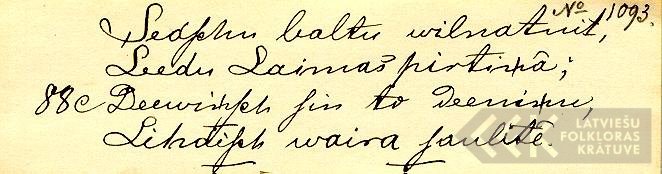 № 11093.
Sedşhu baltu wilnatnit,
Leedu Laimas pirtiņâ;
88c Deewiņşh sin to deeniņu,
Lihdişh waira saulitê.
LATVIEŠU
FOLKLORAS
KRĀTUVE